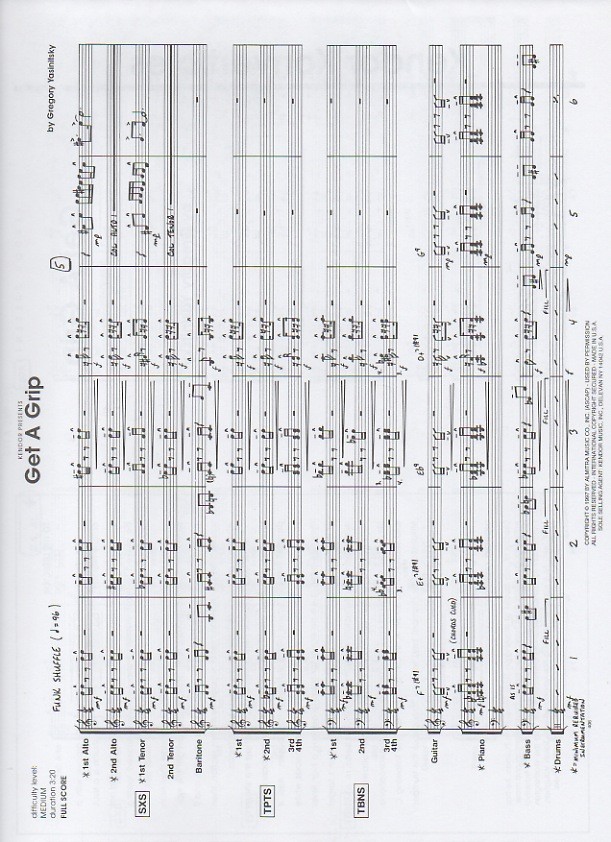 difficulty level:
MEDIUM
duration 3:20
FULL SCORE
KENDOR PRESENTS
Get A Grip
by Gregory Yasinitsky
FUNK SHUFFLE (♩=96)
5
SXS
* 1st Alto
* 2nd Alto
COL 1st ALTO
* 1st Tenor
2nd Tenor
COL TENOR 1
Baritone
TPTS
* 1st
* 2nd
3rd
4th
TBNS
* 1st
* 2nd
3rd
4th
Guitar
(CHORDS CUED)
* Piano
AS IS
* Bass
* Drums
FILL
FILL
FILL
FILL
1 2 3 4 5 6
* = MINIMUM REQUIRED
INSTRUMENTATION
COPYRIGHT © 1987 BY ALMITRA MUSIC CO., INC. (ASCAP) - USED BY PERMISSION
ALL RIGHTS RESERVED - INTERNATIONAL COPYRIGHT SECURED - MADE IN U.S.A.
SOLE SELLING AGENT: KENDOR MUSIC, INC., DELEVAN NY 14042 U.S.A.